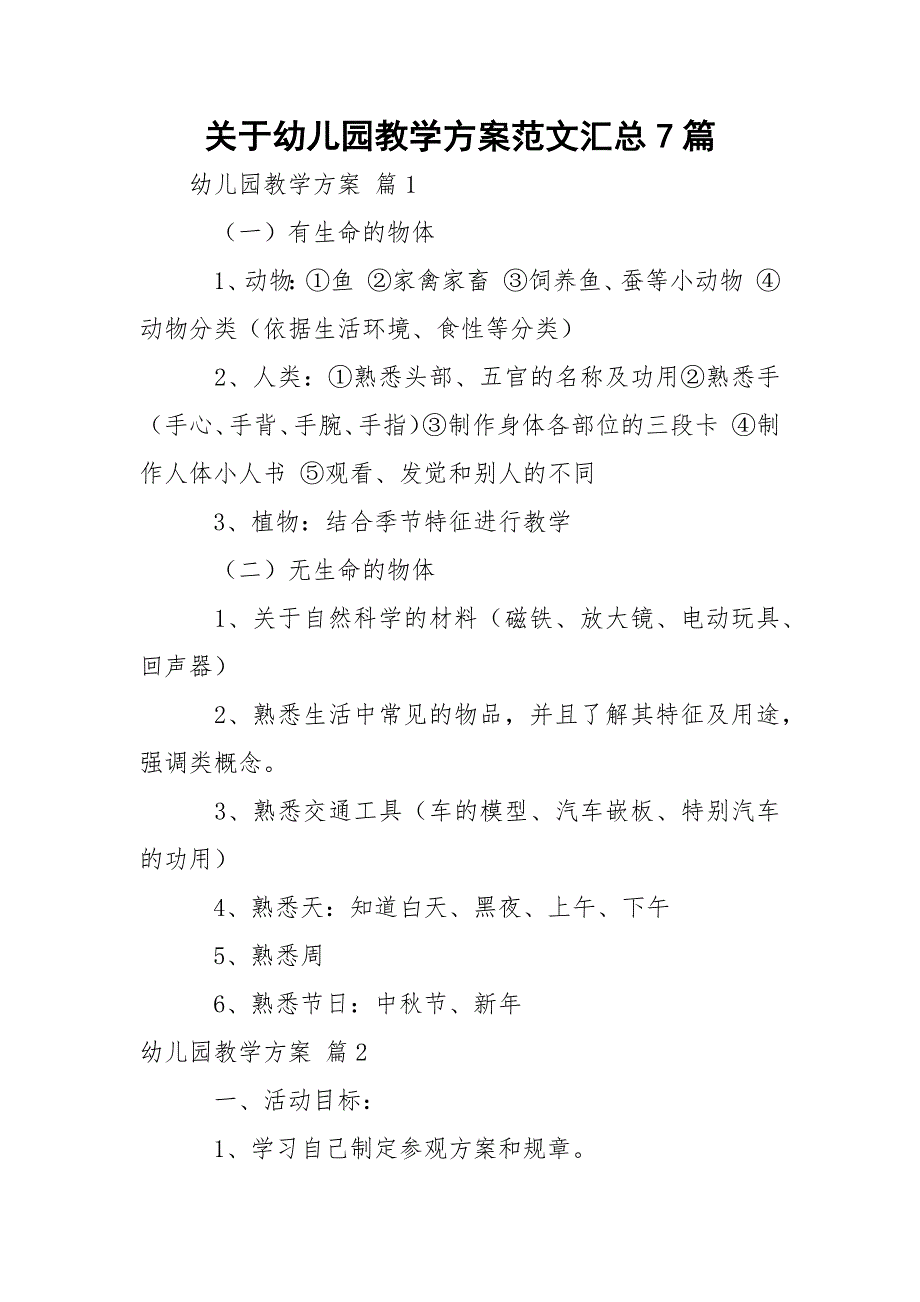 关于幼儿园教学方案范文汇总 7 篇
幼儿园教学方案 篇 1
（一）有生命的物体
1、动物: ①鱼 ②家禽家畜 ③饲养鱼、蚕等小动物 ④
动物分类（依据生活环境、食性等分类）
2、人类：①熟悉头部、五官的名称及功用②熟悉手
（手心、手背、手腕、手指)③制作身体各部位的三段卡 ④制
作人体小人书 ⑤观看、发觉和别人的不同
3、植物：结合季节特征进行教学
（二）无生命的物体
1、关于自然科学的材料（磁铁、放大镜、电动玩具、
回声器）
2、熟悉生活中常见的物品，并且了解其特征及用途，
强调类概念。
3、熟悉交通工具（车的模型、汽车嵌板、特别汽车
的功用）
4、熟悉天：知道白天、黑夜、上午、下午
5、熟悉周
6、熟悉节日：中秋节、新年
幼儿园教学方案 篇 2
一、活动目标：
1、学习自己制定参观方案和规章。